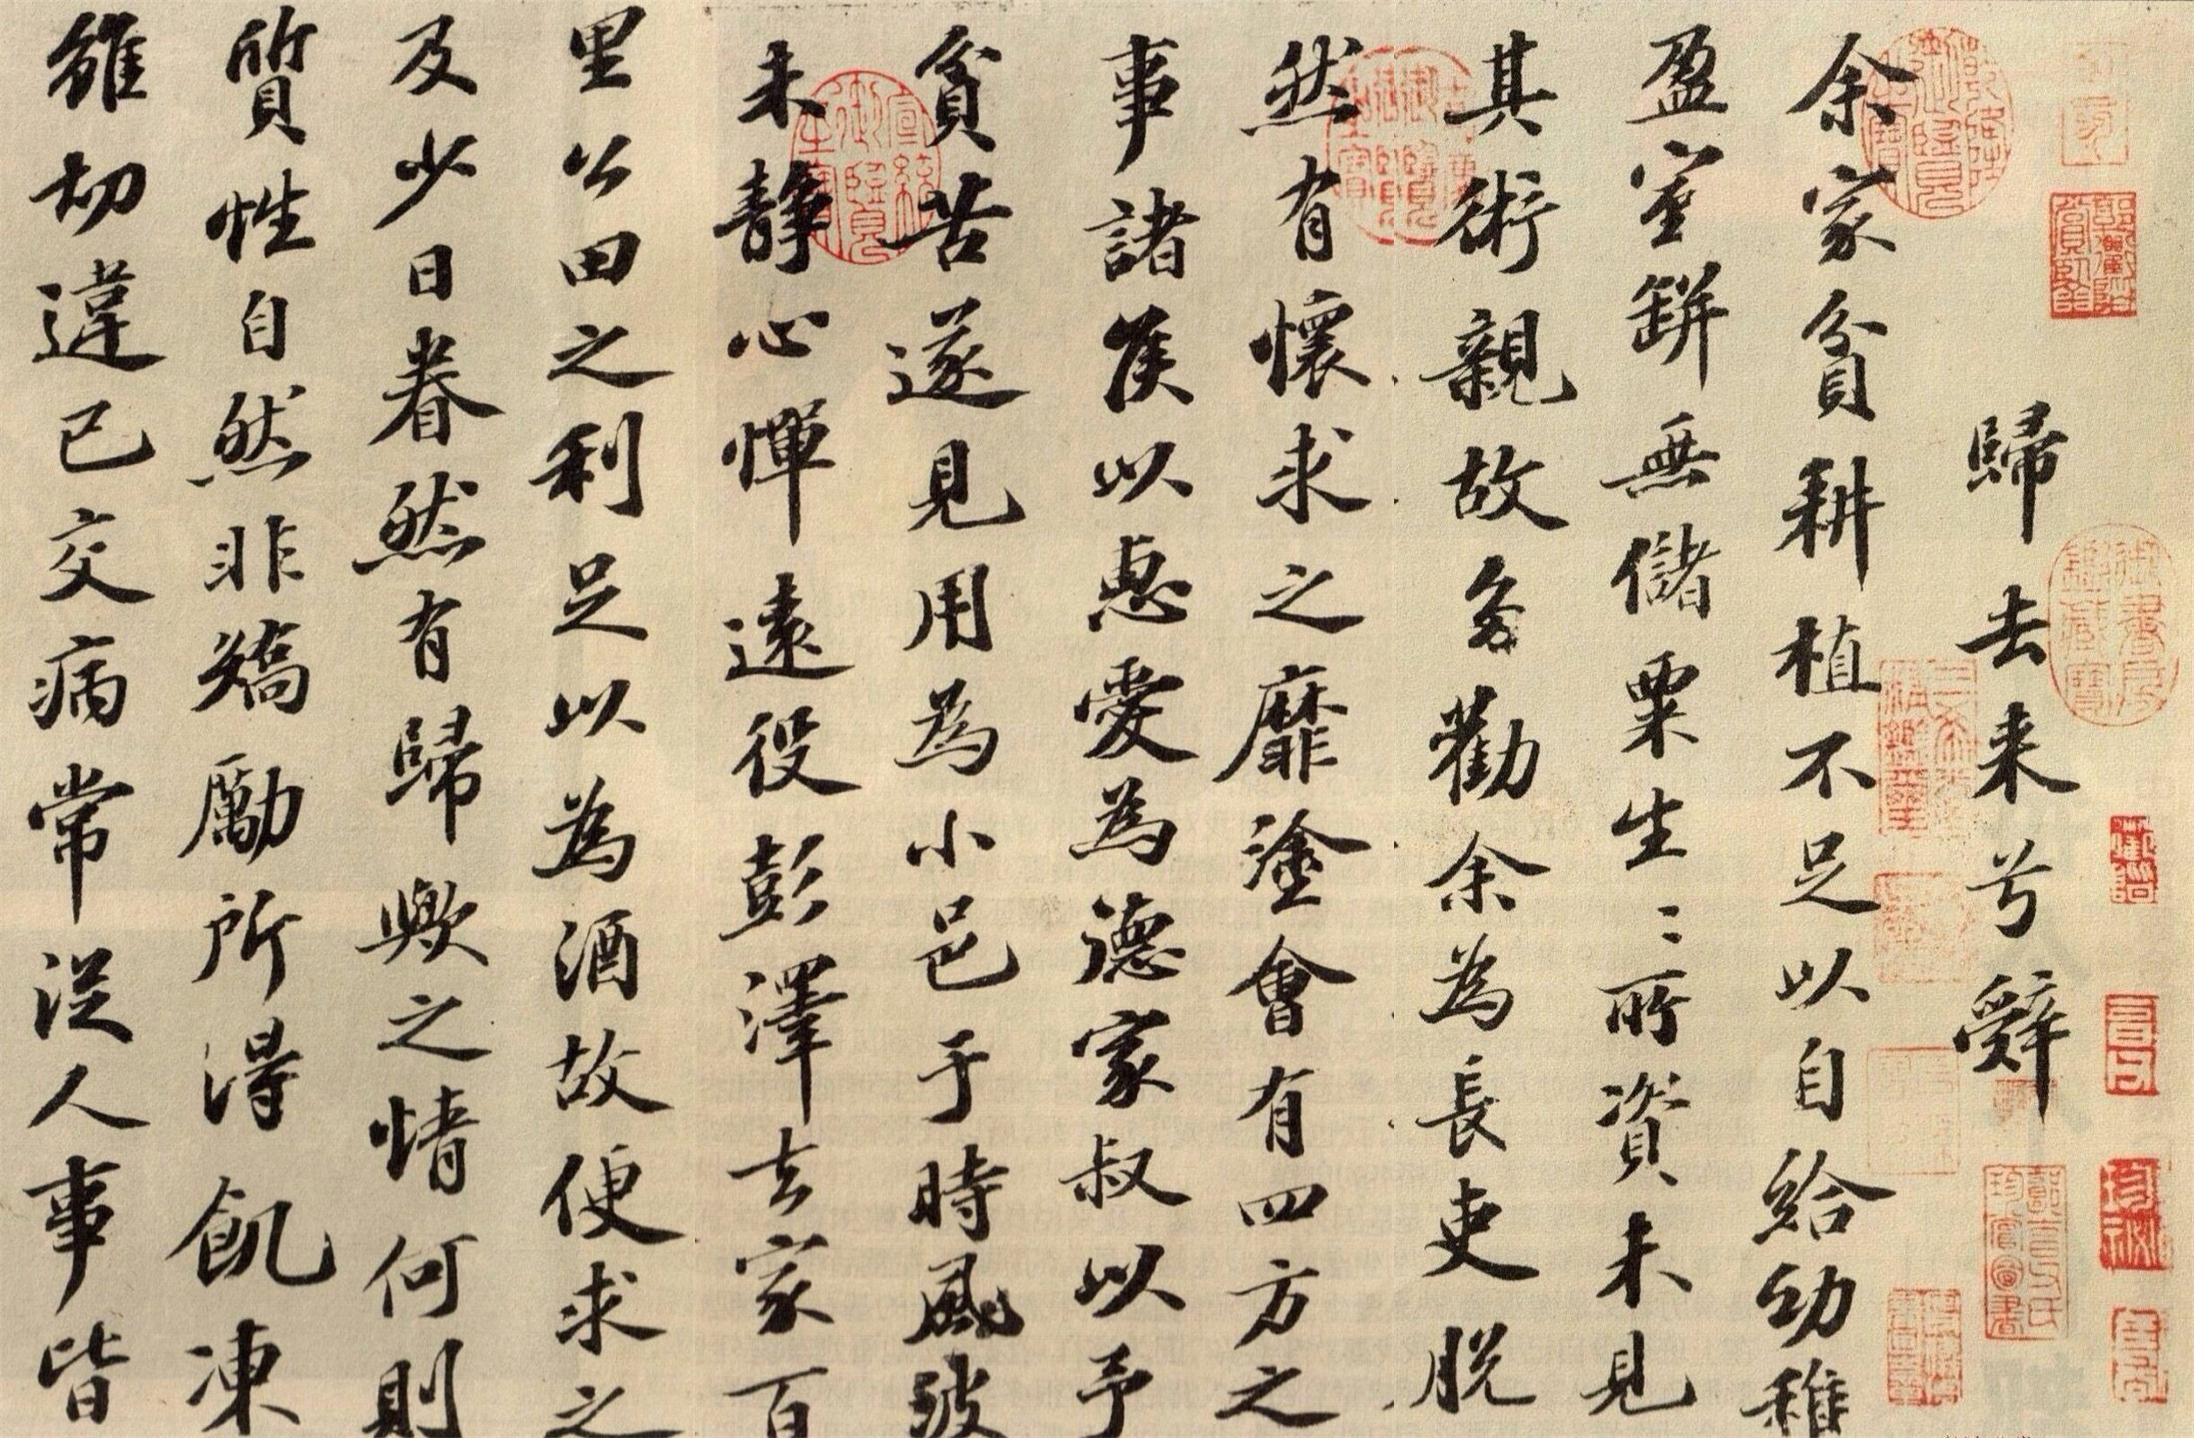 歸去来兮辭
余家貧耕植不足以自給幼稚
盈室缾無儲粟生〻所資未見
其術親故多勸余為長吏脱
然有懷求之靡塗會有四方之
事諸侯以惠愛為德家叔以予
貧苦遂見用為小邑于時風波
未静心憚遠役彭澤去家百
里公田之利足以為酒故便求之
及少日眷然有歸歟之情何則
質性自然非矯勵所得飢凍
雖切違己交病常從人事皆
乾隆御覽之寶
御書房鑑藏寶
三希堂精鑑璽
宣統御覽之寶